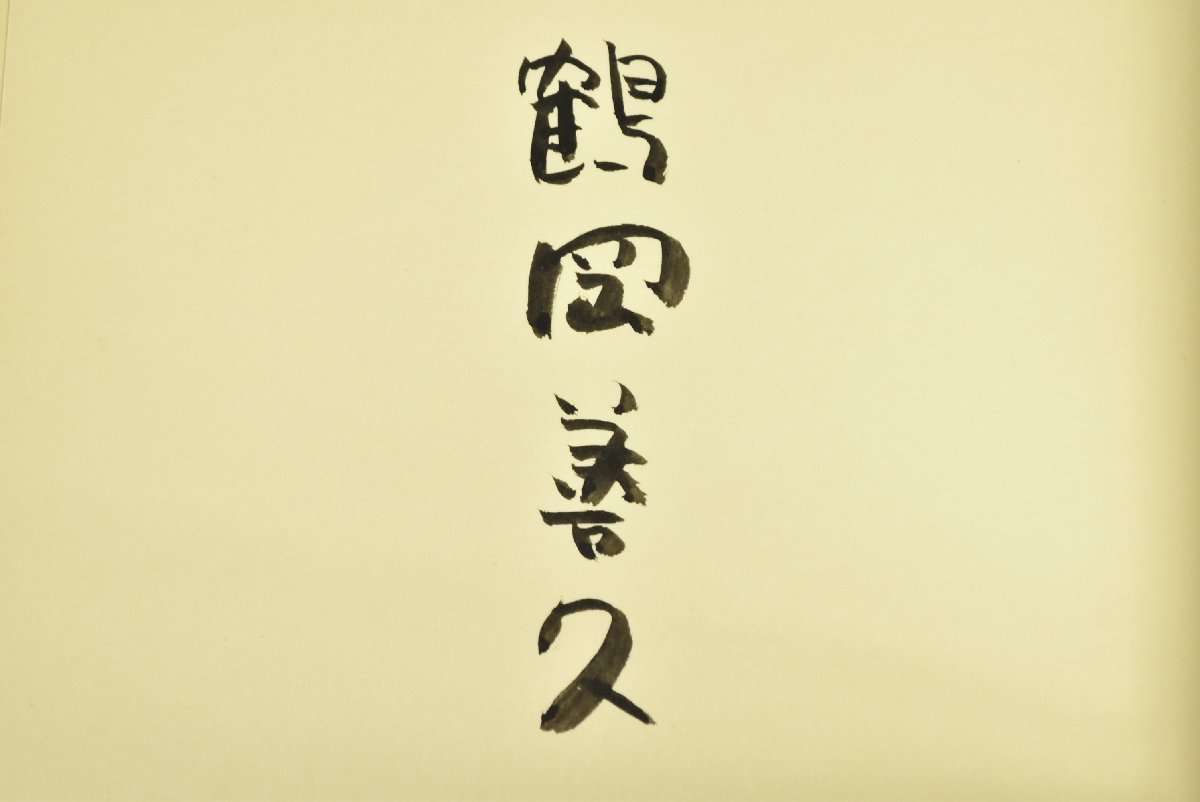 鶴岡善久